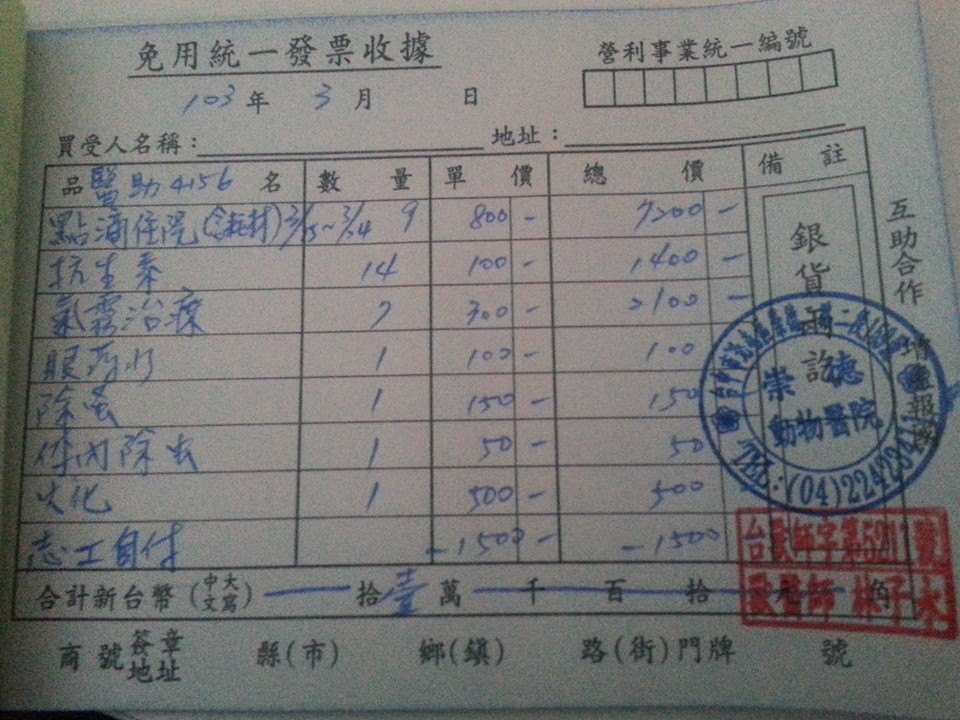 免用統一發票收據
營利事業統一編號
103年 3月 日
買受人名稱： 地址：
品 醫助4156 名 數量 單價 總價 備註
點滴住院(含耗材)3/15~3/24 9 800- 7200-
抗生素 14 100- 1400-
氣霧治療 7 300- 2100-
眼药水 1 100- 100
除蚤 1 150- 150
体內除虫 1 50- 50
火化 1 500- 500
志工自付 -1500- -1500
合計新台幣(中文大寫) 拾壹萬千百拾 角
商號簽章地址 縣(市) 鄉(鎮) 路(街)門牌 號
銀貨兩訖
互助合作
崇德
動物醫院
TEL:(04)224234
台獸師字第 號
獸醫師 林子